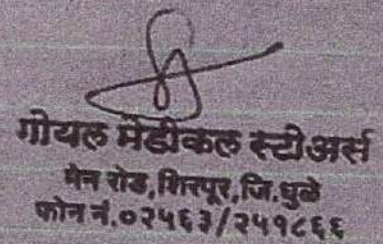 गोयल मेडीकल स्टोअर्स
मेन रोड,शिरपूर,जि.धुळे
फोन नं.०२५६३/२५१८६६